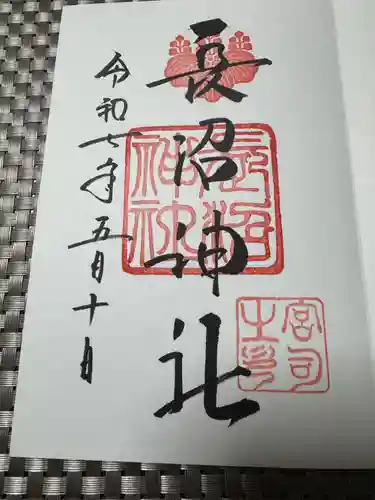 長沼神社
令和七年五月十日
長沼
神社
宮司
之印